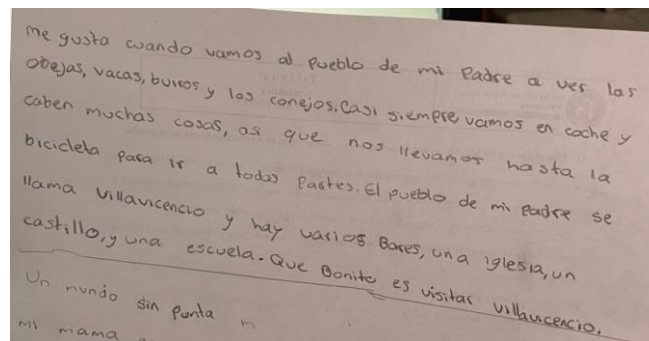 me gusta cuando vamos al pueblo de mi Padre a ver las
obejas, vacas, burros y los conejos. Casi siempre, vamos en coche y
caben muchas cosas, asi que nos llevamos hasta la
bicicleta para ir a todas Partes. El pueblo de mi Padre se
llama Villavicencio y hay varios Bares, una iglesia, un
castillo, y una escuela. Que Bonito es visitar Villavicencio.
Un mundo sin Punta m
mi mama